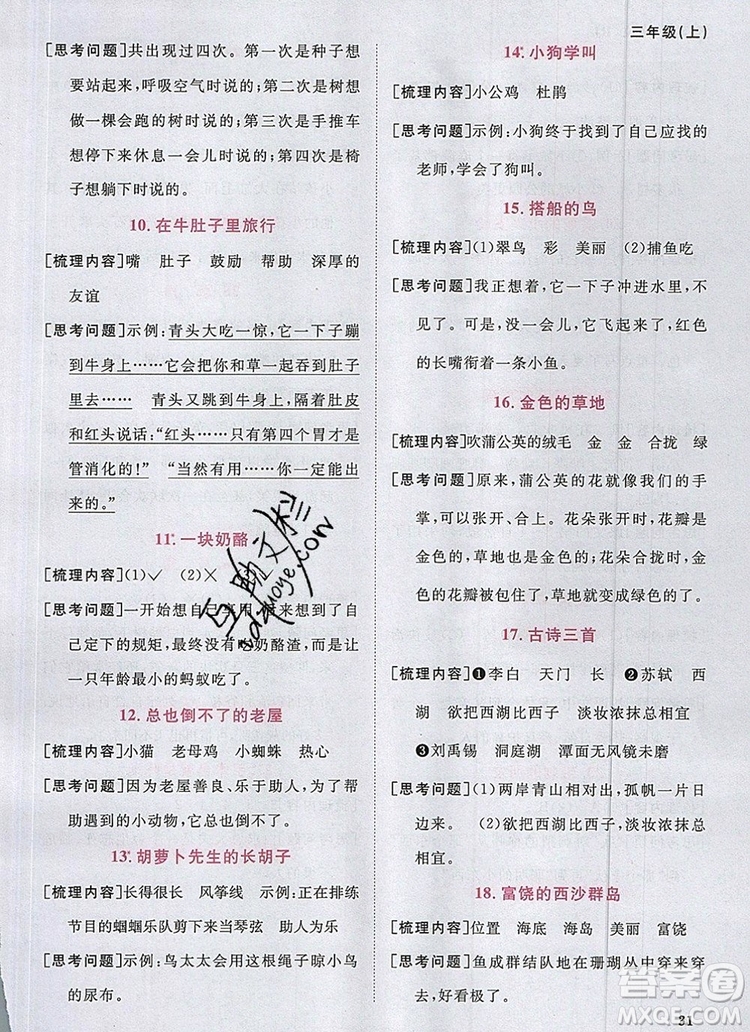 三年级(上)
[思考问题]共出现过四次。第一次是亭子想
要站起来,呼吸空气时说的;第二次是想
做一棵起舞的树时说的;第三次是手推车
想停下来休息一会儿时说的;第四次是椅
子想躺下时说的。
10. 在牛肚子里旅行
[梳理内容]嘴 肚子 鼓励 帮助 深厚的
友谊
[思考问题]示例:青头大吃一惊,它一下子蹦
到牛身上……它会和草一起吞到肚子
里去…… 青头又跳到牛身上,隔着肚皮
和红头说话:“红头……只有第四个胃才是
管消化的!” “当然有用……你一定能出
来的。”
11. 一块奶酪
[梳理内容](1)✓ (2)×
[思考问题]一开始想自己享用,后来想到了自
己定下的规矩,最终没有吃奶酪渣,而是让
一只年龄最小的蚂蚁吃了。
12. 总也倒不了的老屋
[梳理内容]小猫 老母鸡 小蜘蛛 热心
[思考问题]因为老屋善良、乐于助人,为了帮
助遇到的小动物,它总也倒不了。
13. 胡萝卜先生的长胡子
[梳理内容]长得很长 风筝线 示例:正在排练
节目的蝈蝈乐队剪下来当琴弦 助人为乐
[思考问题]示例:鸟太太会用这根绳子晾小鸟
的尿布。
14. 小狗学叫
[梳理内容]小公鸡 杜鹃
[思考问题]示例:小狗终于找到了自己应找的
老师,学会了狗叫。
15. 搭船的鸟
[梳理内容](1)翠鸟 彩 美丽 (2)捕鱼吃
[思考问题]我正想着,它一下子冲进水里,不
见了。可是,没一会儿,它飞起来了,红色
的长嘴衔着一条小鱼。
16. 金色的草地
[梳理内容]吹蒲公英的绒毛 金 金 合拢 绿
[思考问题]原来,蒲公英的花就像我们的手
掌,可以张开、合上。花朵张开时,花瓣是
金色的,草地也是金色的;花朵合拢时,金
色的花瓣被包住,草地就变成绿色的了。
17. 古诗三首
[梳理内容]❶李白 天门 长 ❷苏轼 西
湖 欲把西湖比西子 淡妆浓抹总相宜
❸刘禹锡 洞庭湖 潭面无风镜未磨
[思考问题](1)两岸青山相对出,孤帆一片日
边来。 (2)欲把西湖比西子,淡妆浓抹总
相宜。
18. 富饶的西沙群岛
[梳理内容]位置 海底 海岛 美丽 富饶
[思考问题]鱼成群结队地在珊瑚丛中穿来穿
去,好看极了。
互助文栏
答案圈
MXQE.COM
31